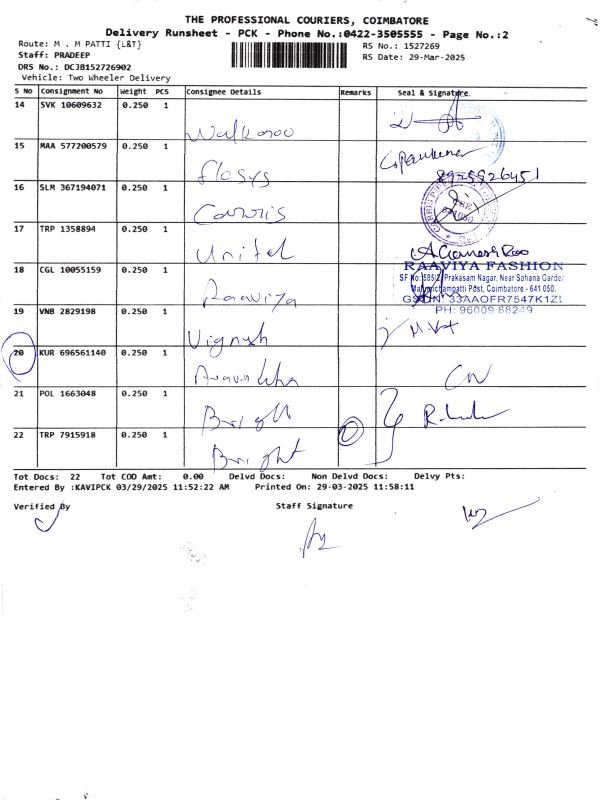 THE PROFESSIONAL COURIERS, COIMBATORE
Delivery Runsheet - PCK - Phone No.:0422-3505555 - Page No.:2
Route: M . M PATTI {L&T} RS No.: 1527269
Staff: PRADEEP RS Date: 29-Mar-2025
DRS No.: DCJB152726902
Vehicle: Two Wheeler Delivery
S No Consignment No Weight PCS Consignee Details Remarks Seal & Signature
14 SVK 10609632 0.250 1
Walkaroo
15 MAA 577200579 0.250 1
flosys
16 SLM 367194071 0.250 1
Carris
17 TRP 1358894 0.250 1
Unitel
18 CGL 10055159 0.250 1
Raaviya
RAAVIYA FASHION
SF No:585/2, Prakasam Nagar, Near Sahana Garden
Malumichampatti Post, Coimbatore - 641 050.
GSTIN: 33AAOFR7547K1ZL
PH: 96009 68249
19 VNB 2829198 0.250 1
Vignesh
20 KUR 696561140 0.250 1
21 POL 1663048 0.250 1
Bright
22 TRP 7915918 0.250 1
Bright
Tot Docs: 22 Tot COD Amt: 0.00 Delvd Docs: Non Delvd Docs: Delvy Pts:
Entered By :KAVIPCK 03/29/2025 11:52:22 AM Printed On: 29-03-2025 11:58:11
Verified By Staff Signature